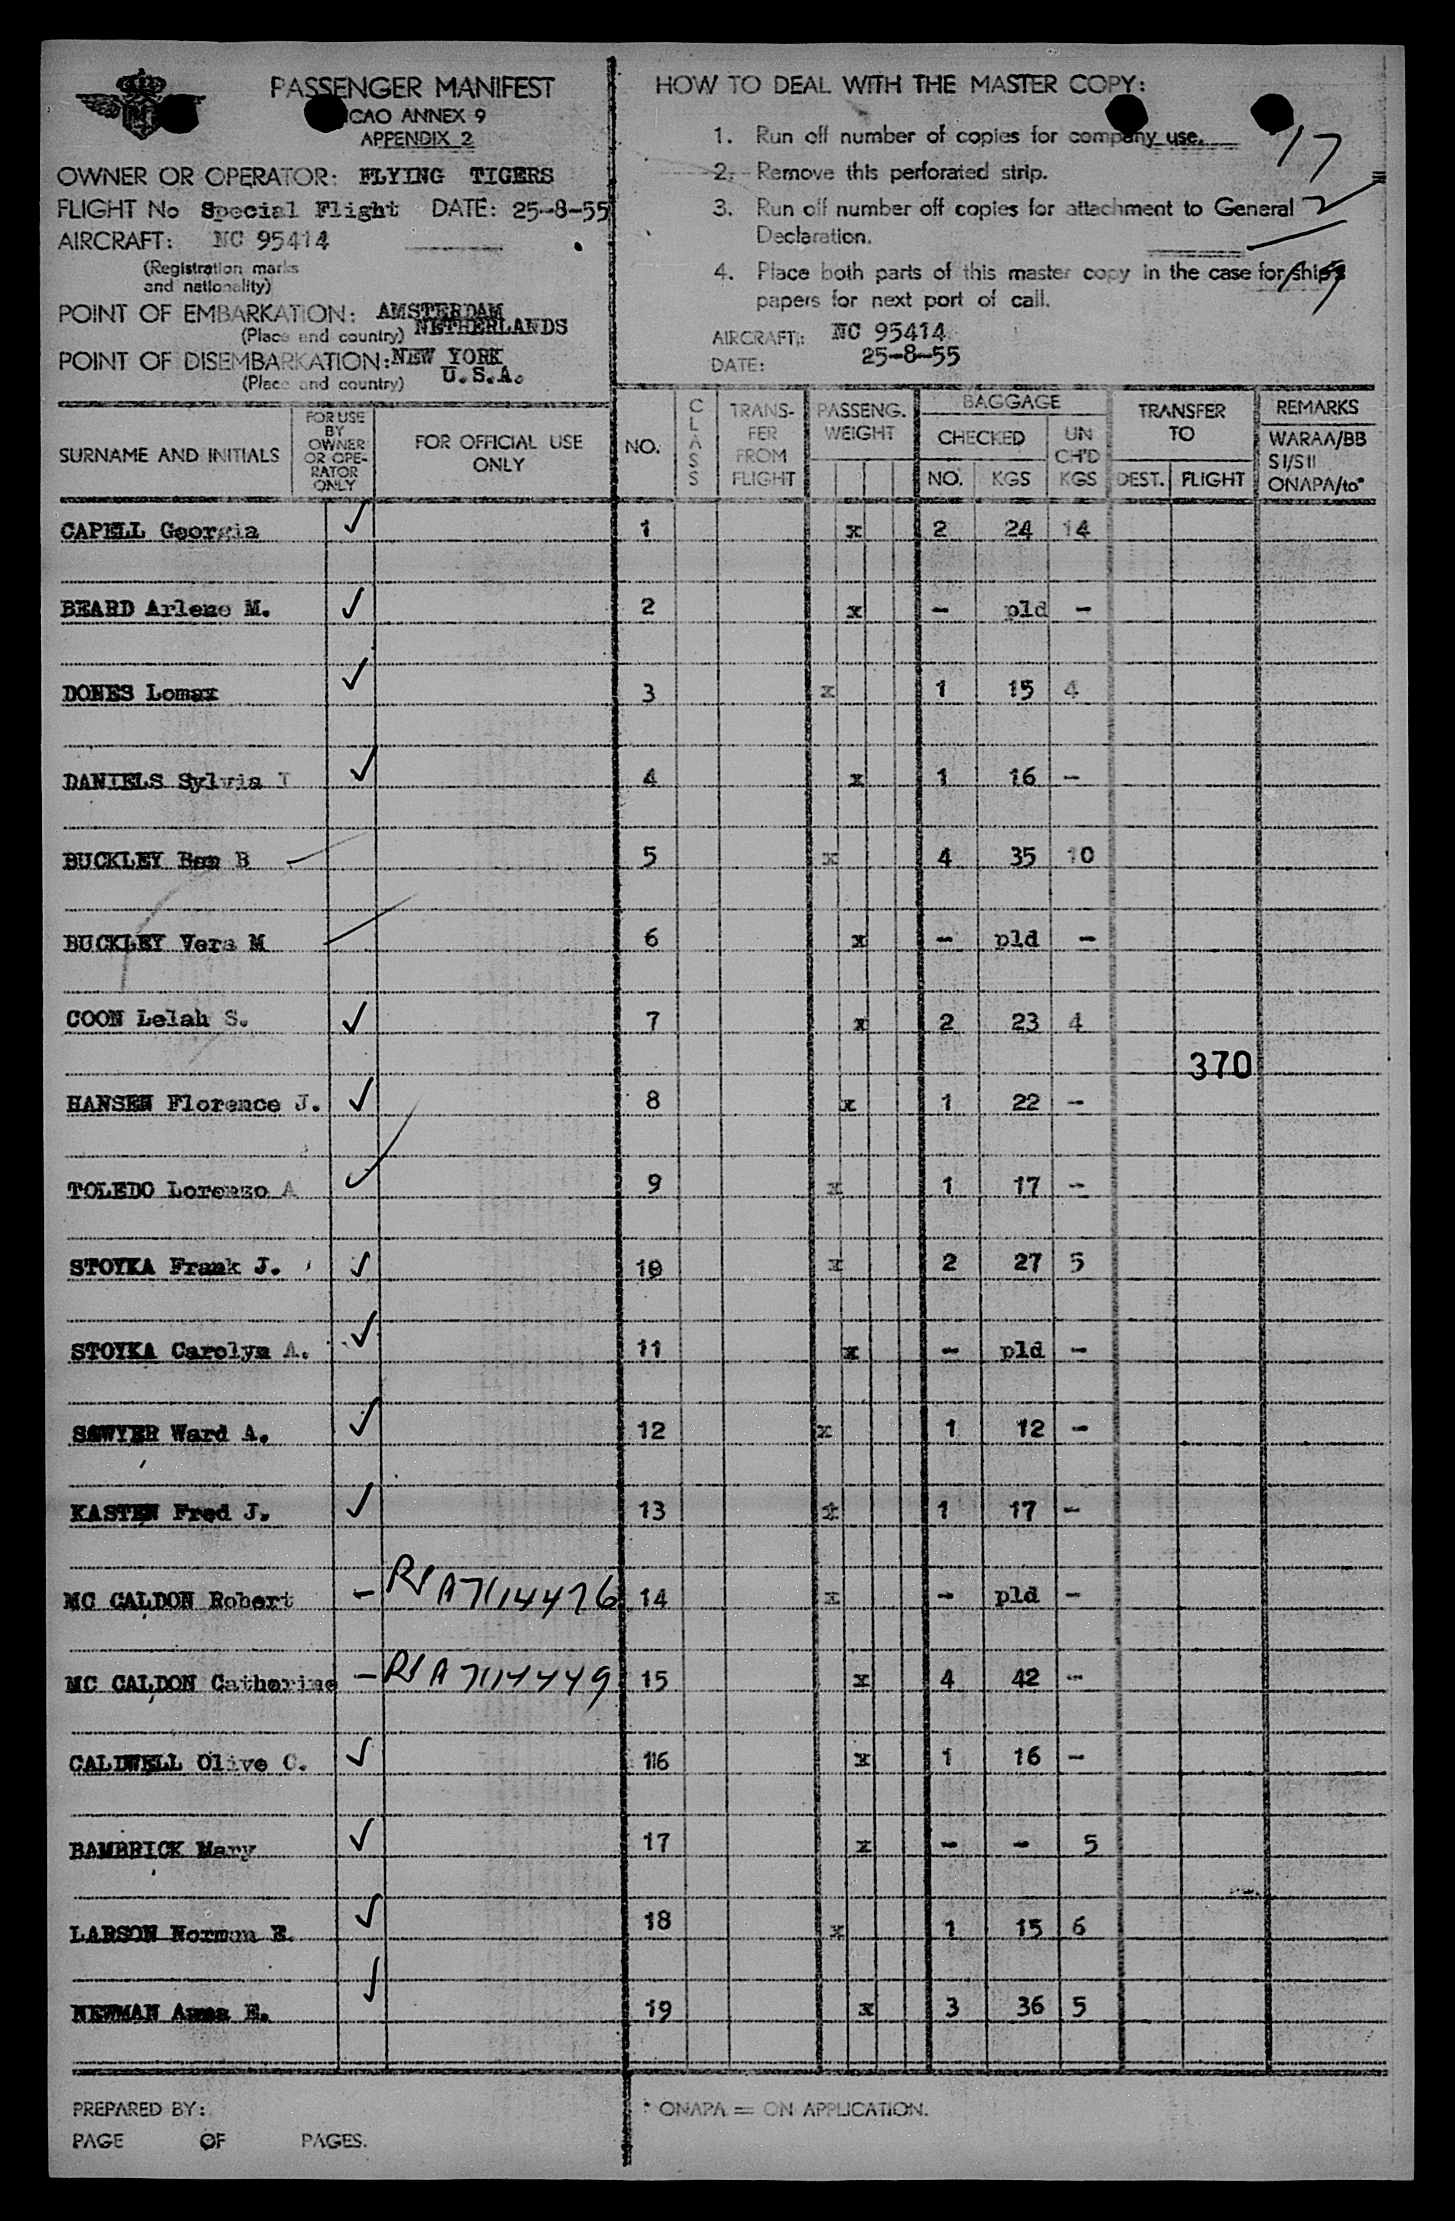 PASSENGER MANIFEST
ICAO ANNEX 9
APPENDIX 2
OWNER OR OPERATOR: FLYING TIGERS
FLIGHT No Special Flight DATE: 25-8-55
AIRCRAFT: NC 95414
(Registration marks
and nationality)
POINT OF EMBARKATION: AMSTERDAM
(Place and country) NETHERLANDS
POINT OF DISEMBARKATION: NEW YORK
(Place and country) U.S.A.
HOW TO DEAL WITH THE MASTER COPY:
1. Run off number of copies for company use.
2. Remove this perforated strip.
3. Run off number off copies for attachment to General
Declaration.
4. Place both parts of this master copy in the case for ship's
papers for next port of call.
17
2
AIRCRAFT: NC 95414
DATE: 25-8-55
SURNAME AND INITIALS
FOR USE BY OWNER OR OPE- RATOR ONLY
FOR OFFICIAL USE ONLY
NO.
CLASS
TRANS- FER FROM FLIGHT
PASSENG. WEIGHT
BAGGAGE
CHECKED
NO. KGS
UN CH'D KGS
TRANSFER TO
DEST. FLIGHT
REMARKS
WARAA/BB
SI/SII
ONAPA/to*
CAPELL Georgia ✓ 1 x 2 24 14
BEARD Arlene M. ✓ 2 x - pld -
DONES Lomax ✓ 3 x 1 15 4
DANIELS Sylvia I ✓ 4 x 1 16 -
BUCKLEY Ben B 5 x 4 35 10
BUCKLEY Vera M 6 x - pld -
COON Lelah S. ✓ 7 x 2 23 4
370
HANSEN Florence J. ✓ 8 x 1 22 -
TOLEDO Lorenzo A ✓ 9 x 1 17 -
STOYKA Frank J. ✓ 10 x 2 27 5
STOYKA Carolyn A. ✓ 11 x - pld -
SAWYER Ward A. ✓ 12 x 1 12 -
KASTEN Fred J. ✓ 13 x 1 17 -
MC CALDON Robert - A7114476 14 x - pld -
MC CALDON Catherine - A7114449 15 x 4 42 -
CALDWELL Olive C. ✓ 16 x 1 16 -
BAMBRICK Mary ✓ 17 x - - 5
LARSON Norman E. ✓ 18 x 1 15 6
NEWMAN Anna E. ✓ 19 x 3 36 5
PREPARED BY:
PAGE OF PAGES.
* ONAPA = ON APPLICATION.